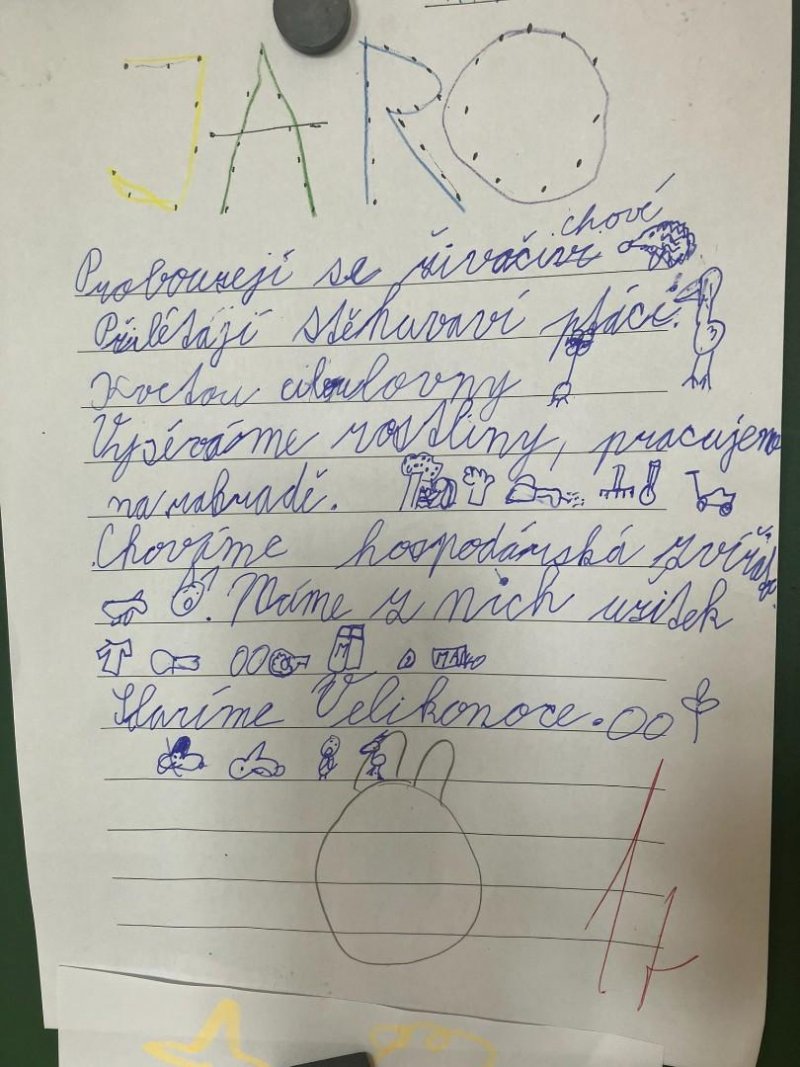 JARO
chové
Probouzejí se živačiv
Přilétájí stěhuvaví ptáci.
Kvetou cibulovny
Vyséváme rostliny, pracujeme
na zahradě.
Chováme hospodářská zvířat
. Máme z nich užitek
M MÁSLO
Slavíme Velikonoce.
1